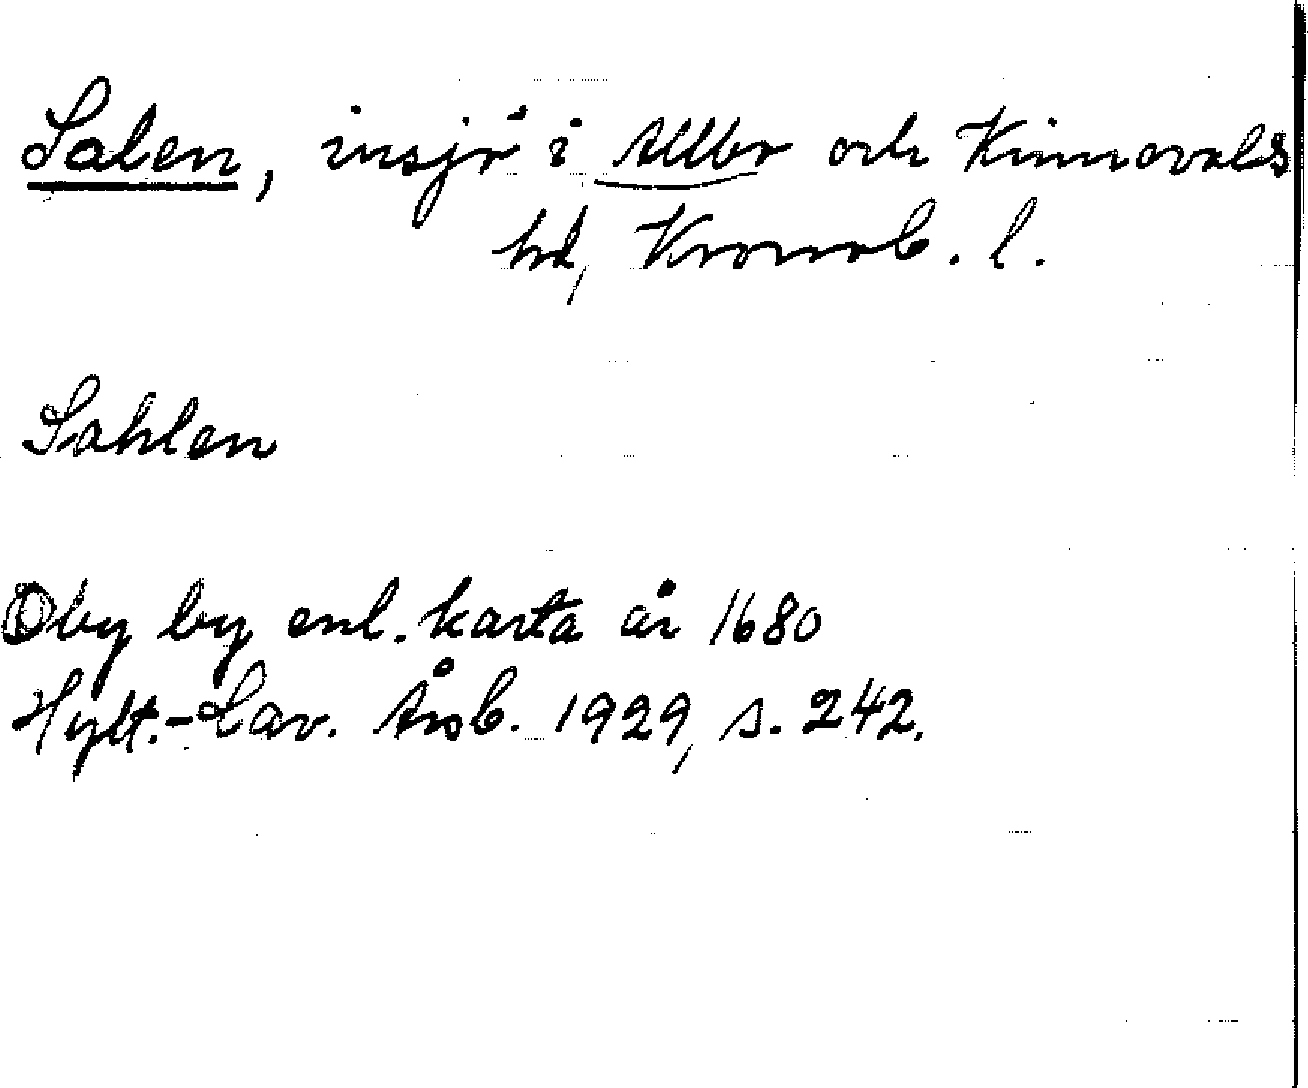 Salen, insjö i Allbo och Kinnevalds
hd, Kronob. l.
Sahlen
Oby by enl. karta år 1680
Hylt.-Cav. Årsb. 1929, s. 242.